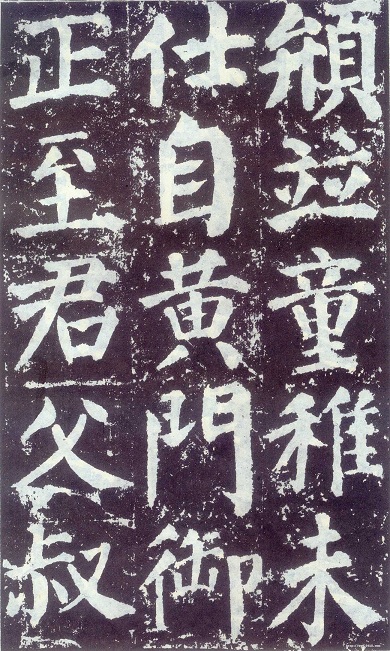 並童稚未
仕自黃門御
正至君父叔